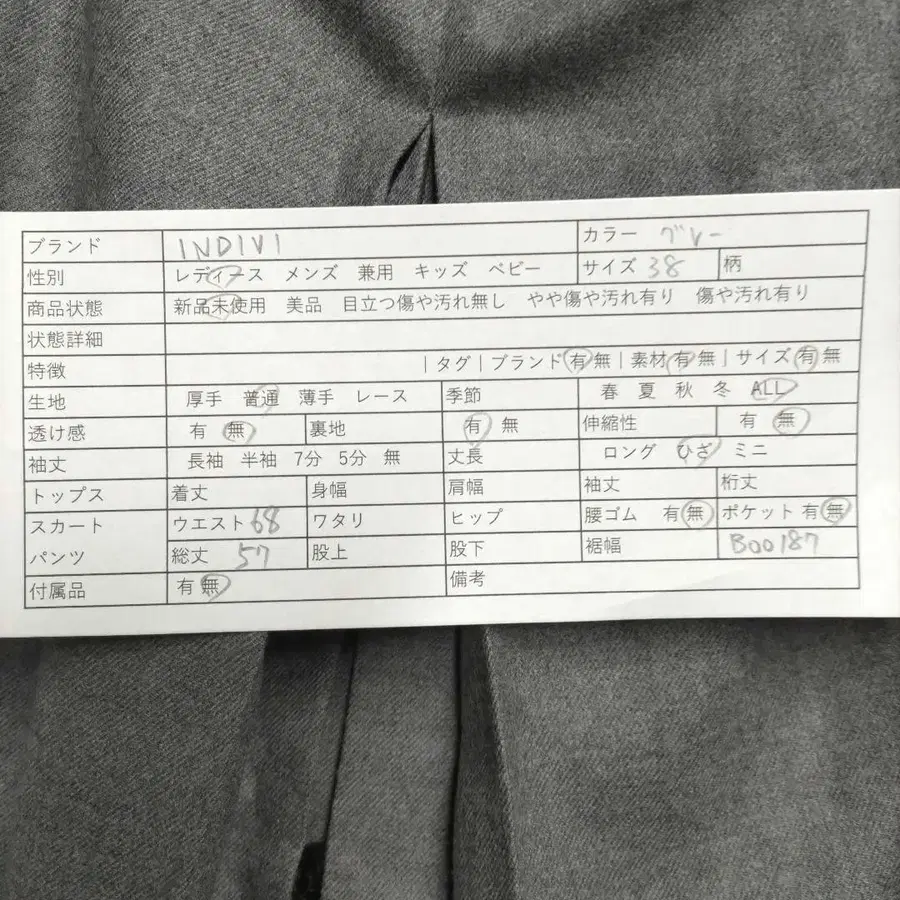 ブランド INDIVI カラー グレー
性別 レディース メンズ 兼用 キッズ ベビー サイズ 38 柄
商品状態 新品未使用 美品 目立つ傷や汚れ無し やや傷や汚れ有り 傷や汚れ有り
状態詳細
特徴 | タグ | ブランド 有 無 | 素材 有 無 | サイズ 有 無
生地 厚手 普通 薄手 レース 季節 春 夏 秋 冬 ALL
透け感 有 無 裏地 有 無 伸縮性 有 無
袖丈 長袖 半袖 7分 5分 無 丈長 ロング ひざ ミニ
トップス 着丈 身幅 肩幅 袖丈 裄丈
スカート ウエスト 68 ワタリ ヒップ 腰ゴム 有 無 ポケット 有 無
パンツ 総丈 57 股上 股下 裾幅 B00187
付属品 有 無 備考